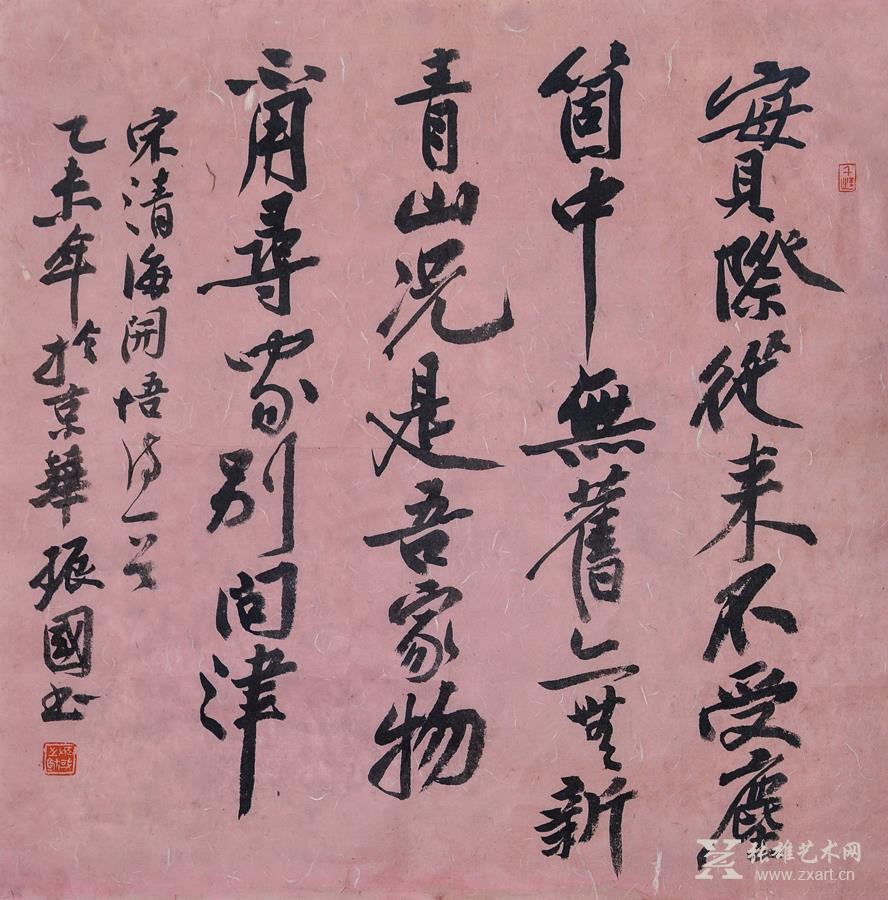 實際從来不受塵
箇中無舊亦無新
青山況是吾家物
不用尋家別問津
宋清海開悟詩一首
乙未年於京華振國书
张雄艺术网
www.zxart.cn